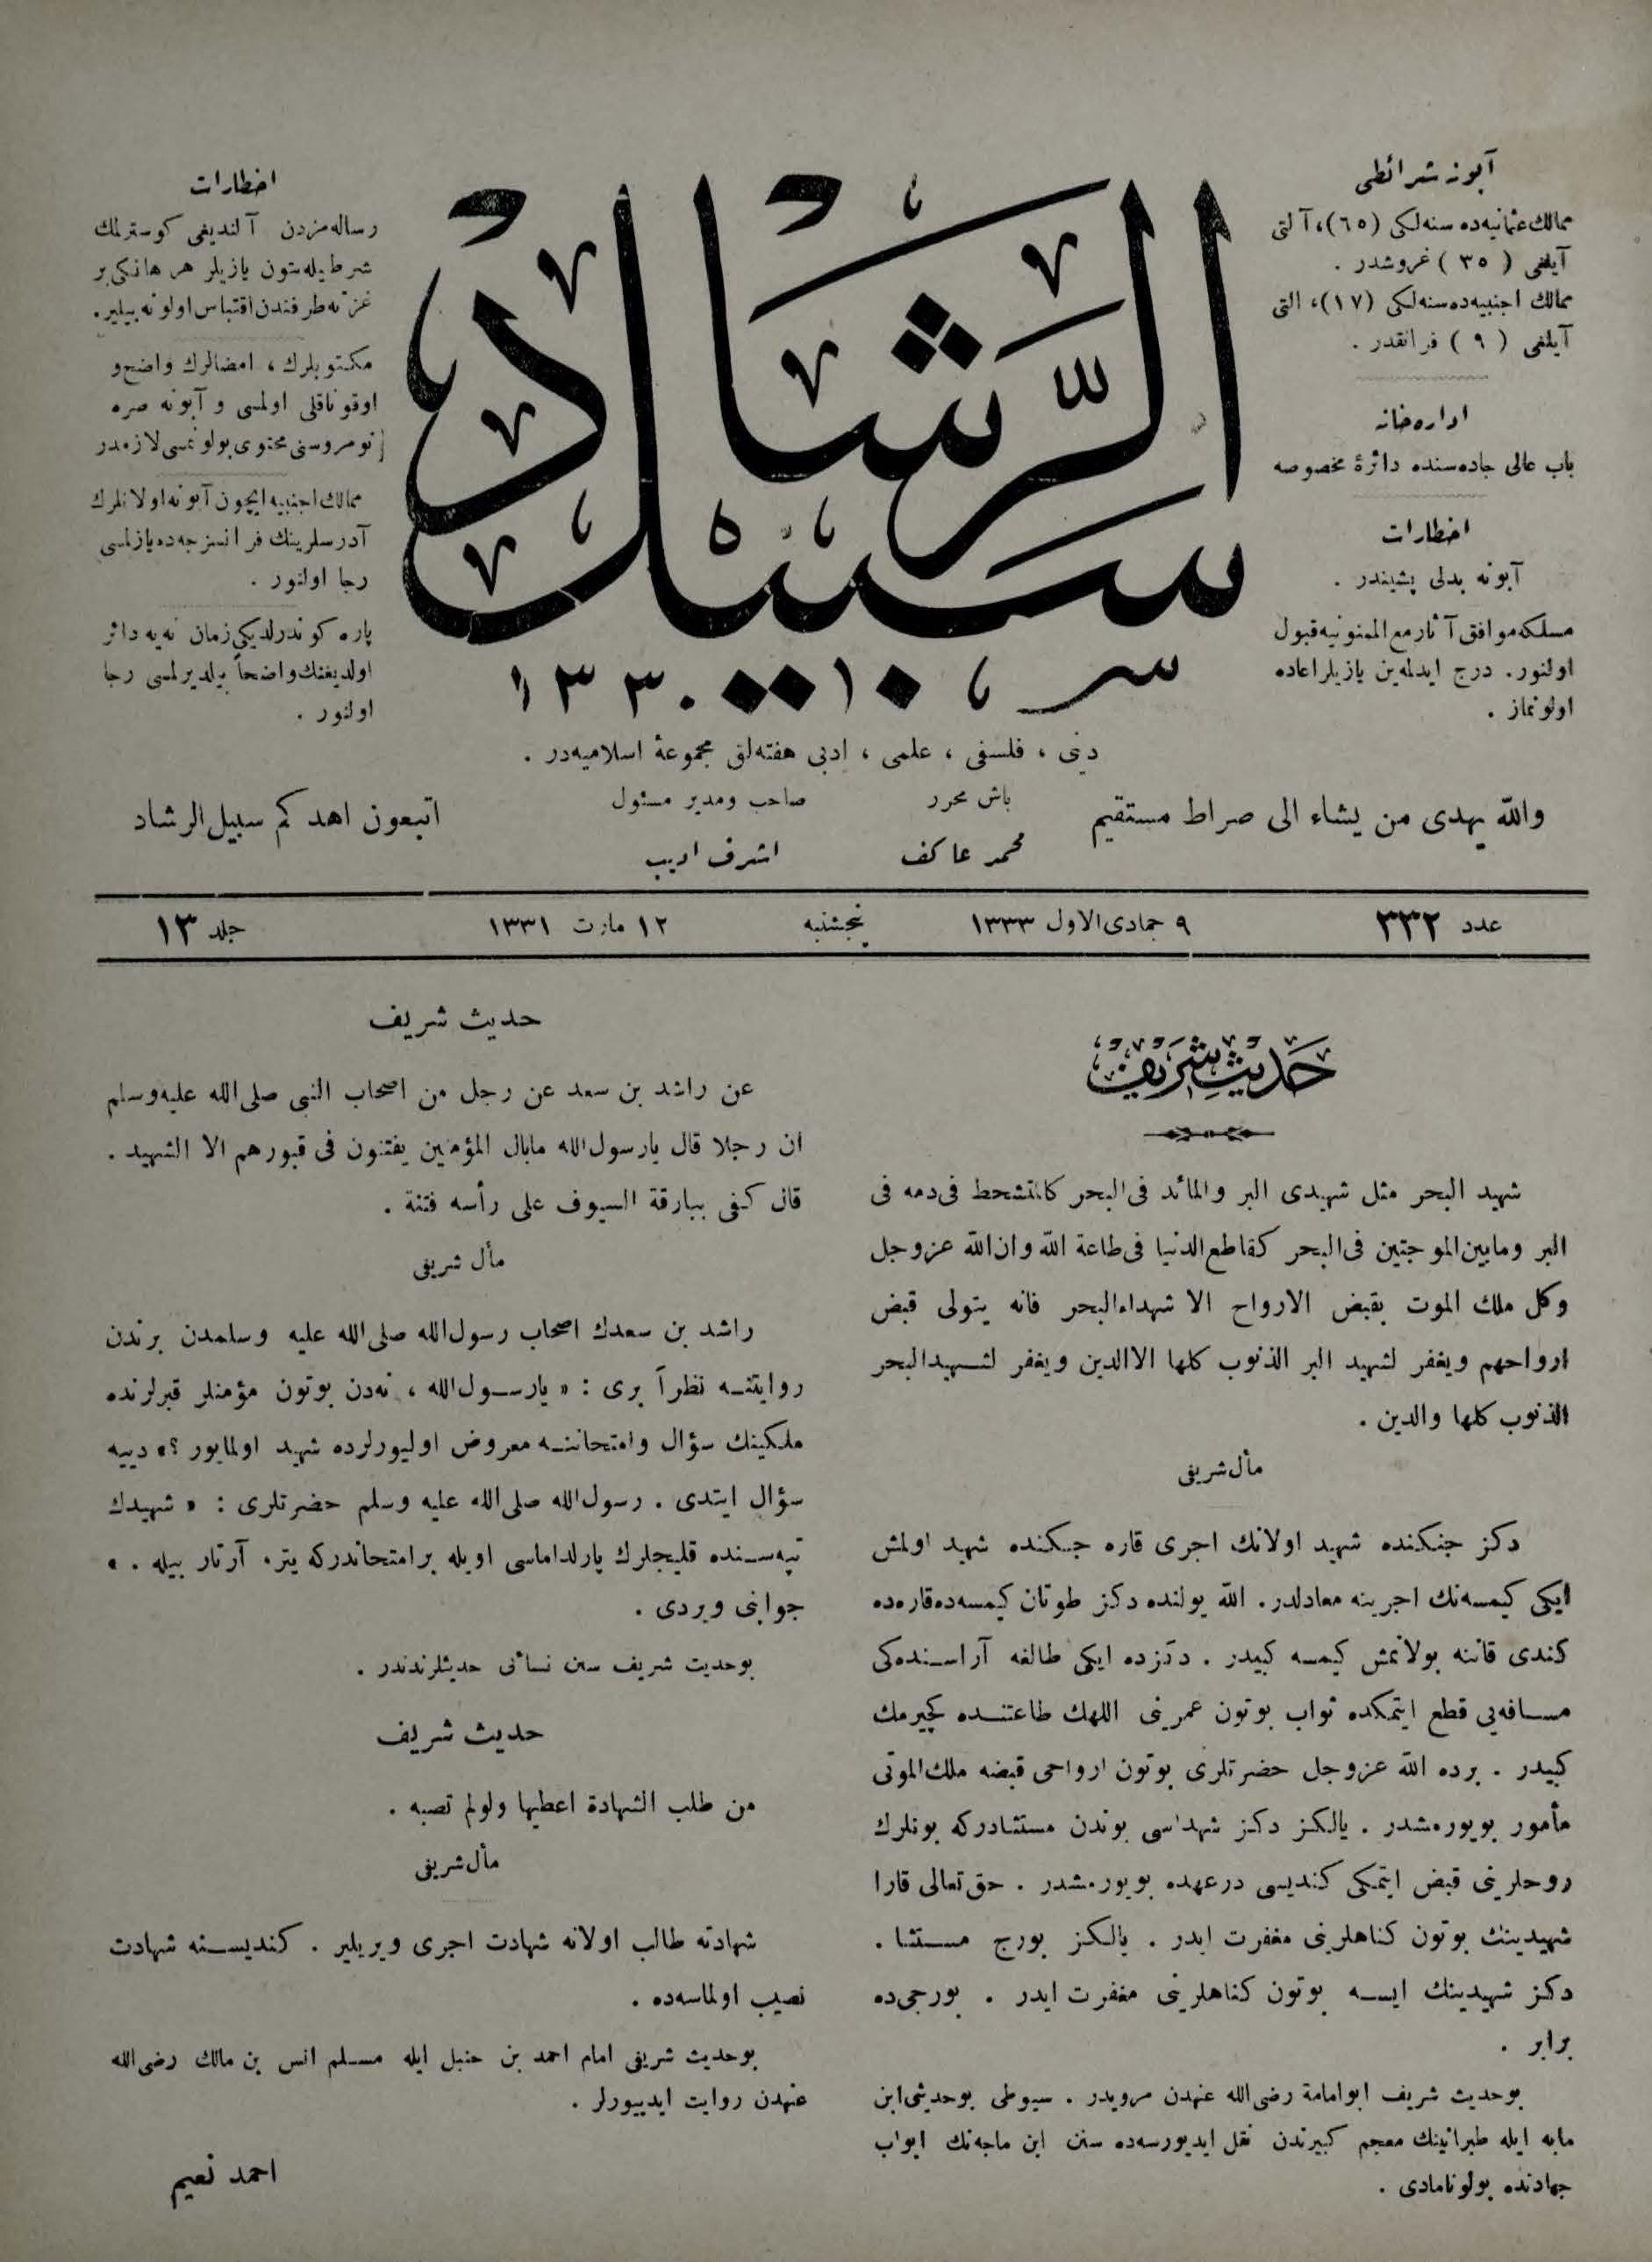 آبونه شرائطی
ممالك عثمانیه‌ده سنه‌لکی (٦٥)، آلتی
آیلغی (٣٥) غروشدر .
ممالك اجنبیه‌ده سنه‌لکی (١٧)، التی
آیلغی (٩) فرانقدر .
اداره‌خانه
باب عالی جاده‌سنده دائرۀ مخصوصه
اخطارات
آبونه بدلی پشیندر .
مسلکه موافق آثار مع‌الممنونیه قبول
اولنور. درج ایدلمه‌ین یازیلر اعاده
اولونماز .
سبیل الرشاد
١٣٣٠
اخطارات
رساله‌مزدن آلندیغی کوسترلمك
شرطیله بتون یازیلر هر هانکی بر
غزته طرفندن اقتباس اولونه بیلیر.
مکتوبلرك ، امضالرك واضح و
اوقوناقلی اولمسی و آبونه صره
نومروسنی محتوی بولونمسی لازمدر
ممالك اجنبیه ایچون آبونه اولانلرك
آدرسلرینك فرانسزجه‌ده یازلمسی
رجا اولنور .
پاره کوندرلدیکی زمان نه‌یه دائر
اولدیغنك واضحاً بیلدیرلمسی رجا
اولنور .
دینی ، فلسفی ، علمی ، ادبی هفته‌لق مجموعۀ اسلامیه‌در .
والله یهدی من یشاء الی صراط مستقیم
باش محرر
محمد عاکف
صاحب ومدیر مسئول
اشرف ادیب
اتبعون اهدکم سبیل‌الرشاد
عدد ٣٣٢
٩ جمادی‌الاول ١٣٣٣
پنجشنبه
١٢ مارت ١٣٣١
جلد ١٣
حدیث شریف
شهید البحر مثل شهیدی البر والمائد فی‌البحر کالمتشحط فی‌دمه فی
البر ومابین‌الموجتین فی‌البحر کقاطع‌الدنیا فی‌طاعة الله وان‌الله عزوجل
وکل ملك الموت بقبض الارواح الا شهداءالبحر فانه یتولی قبض
ارواحهم ویغفر لشهید البر الذنوب کلها الاالدین ویغفر لشهیدالبحر
الذنوب کلها والدین .
مأل‌شریفی
دکز جنکنده شهید اولانك اجری قاره جنکنده شهید اولمش
ایکی کیمسه‌نك اجرینه معادلدر. الله یولنده دکز طوتان کیمسه‌ده قاره‌ده
کندی قاننه بولانمش کیمسه کبیدر . دکزده ایکی طالغه آراسنده‌کی
مسافه‌یی قطع ایتمکده ثواب بوتون عمرینی اللهك طاعتنده کچیرمك
کبیدر . برده الله عزوجل حضرتلری بوتون ارواحی قبضه ملك‌الموتی
مأمور بویورمشدر . یالکز دکز شهداسی بوندن مستثنادرکه بونلرك
روحلرینی قبض ایتمکی کندیسی درعهده بویورمشدر . حق‌تعالی قارا
شهیدینك بوتون کناهلرینی مغفرت ایدر . یالکز بورج مستثنا .
دکز شهیدینك ایسه بوتون کناهلرینی مغفرت ایدر . بورجی‌ده
برابر .
بوحدیث شریف ابوامامة رضی‌الله عنهدن مرویدر . سیوطی بوحدیثی ابن
ماجه ایله طبرانینك معجم کبیرندن نقل ایدیورسه‌ده سنن ابن ماجه‌نك ابواب
جهادنده بولونامادی .
حدیث شریف
عن راشد بن سعد عن رجل من اصحاب النبی صلی‌الله علیه‌وسلم
ان رجلا قال یارسول‌الله مابال المؤمنین یفتنون فی قبورهم الا الشهید .
قال کفی ببارقة السیوف علی رأسه فتنة .
مأل شریفی
راشد بن سعدك اصحاب رسول‌الله صلی‌الله علیه وسلمدن برندن
روایتنه نظراً بری : « یارسول‌الله ، نه‌دن بوتون مؤمنلر قبرلرنده
ملکینك سؤال وامتحاننه معروض اولیورلرده شهید اولمایور ؟» دییه
سؤال ایتدی . رسول‌الله صلی‌الله علیه وسلم حضرتلری : « شهیدك
تپه‌سنده قلیجلرك پارلداماسی اویله برامتحاندرکه یتر، آرتار بیله . »
جوابنی ویردی .
بوحدیث شریف سنن نسائی حدیثلرندندر .
حدیث شریف
من طلب الشهادة اعطیها ولولم تصبه .
مأل‌شریفی
شهادته طالب اولانه شهادت اجری ویریلیر . کندیسنه شهادت
نصیب اولماسه‌ده .
بوحدیث شریفی امام احمد بن حنبل ایله مسلم انس بن مالك رضی‌الله
عنهدن روایت ایدییورلر .
احمد نعیم